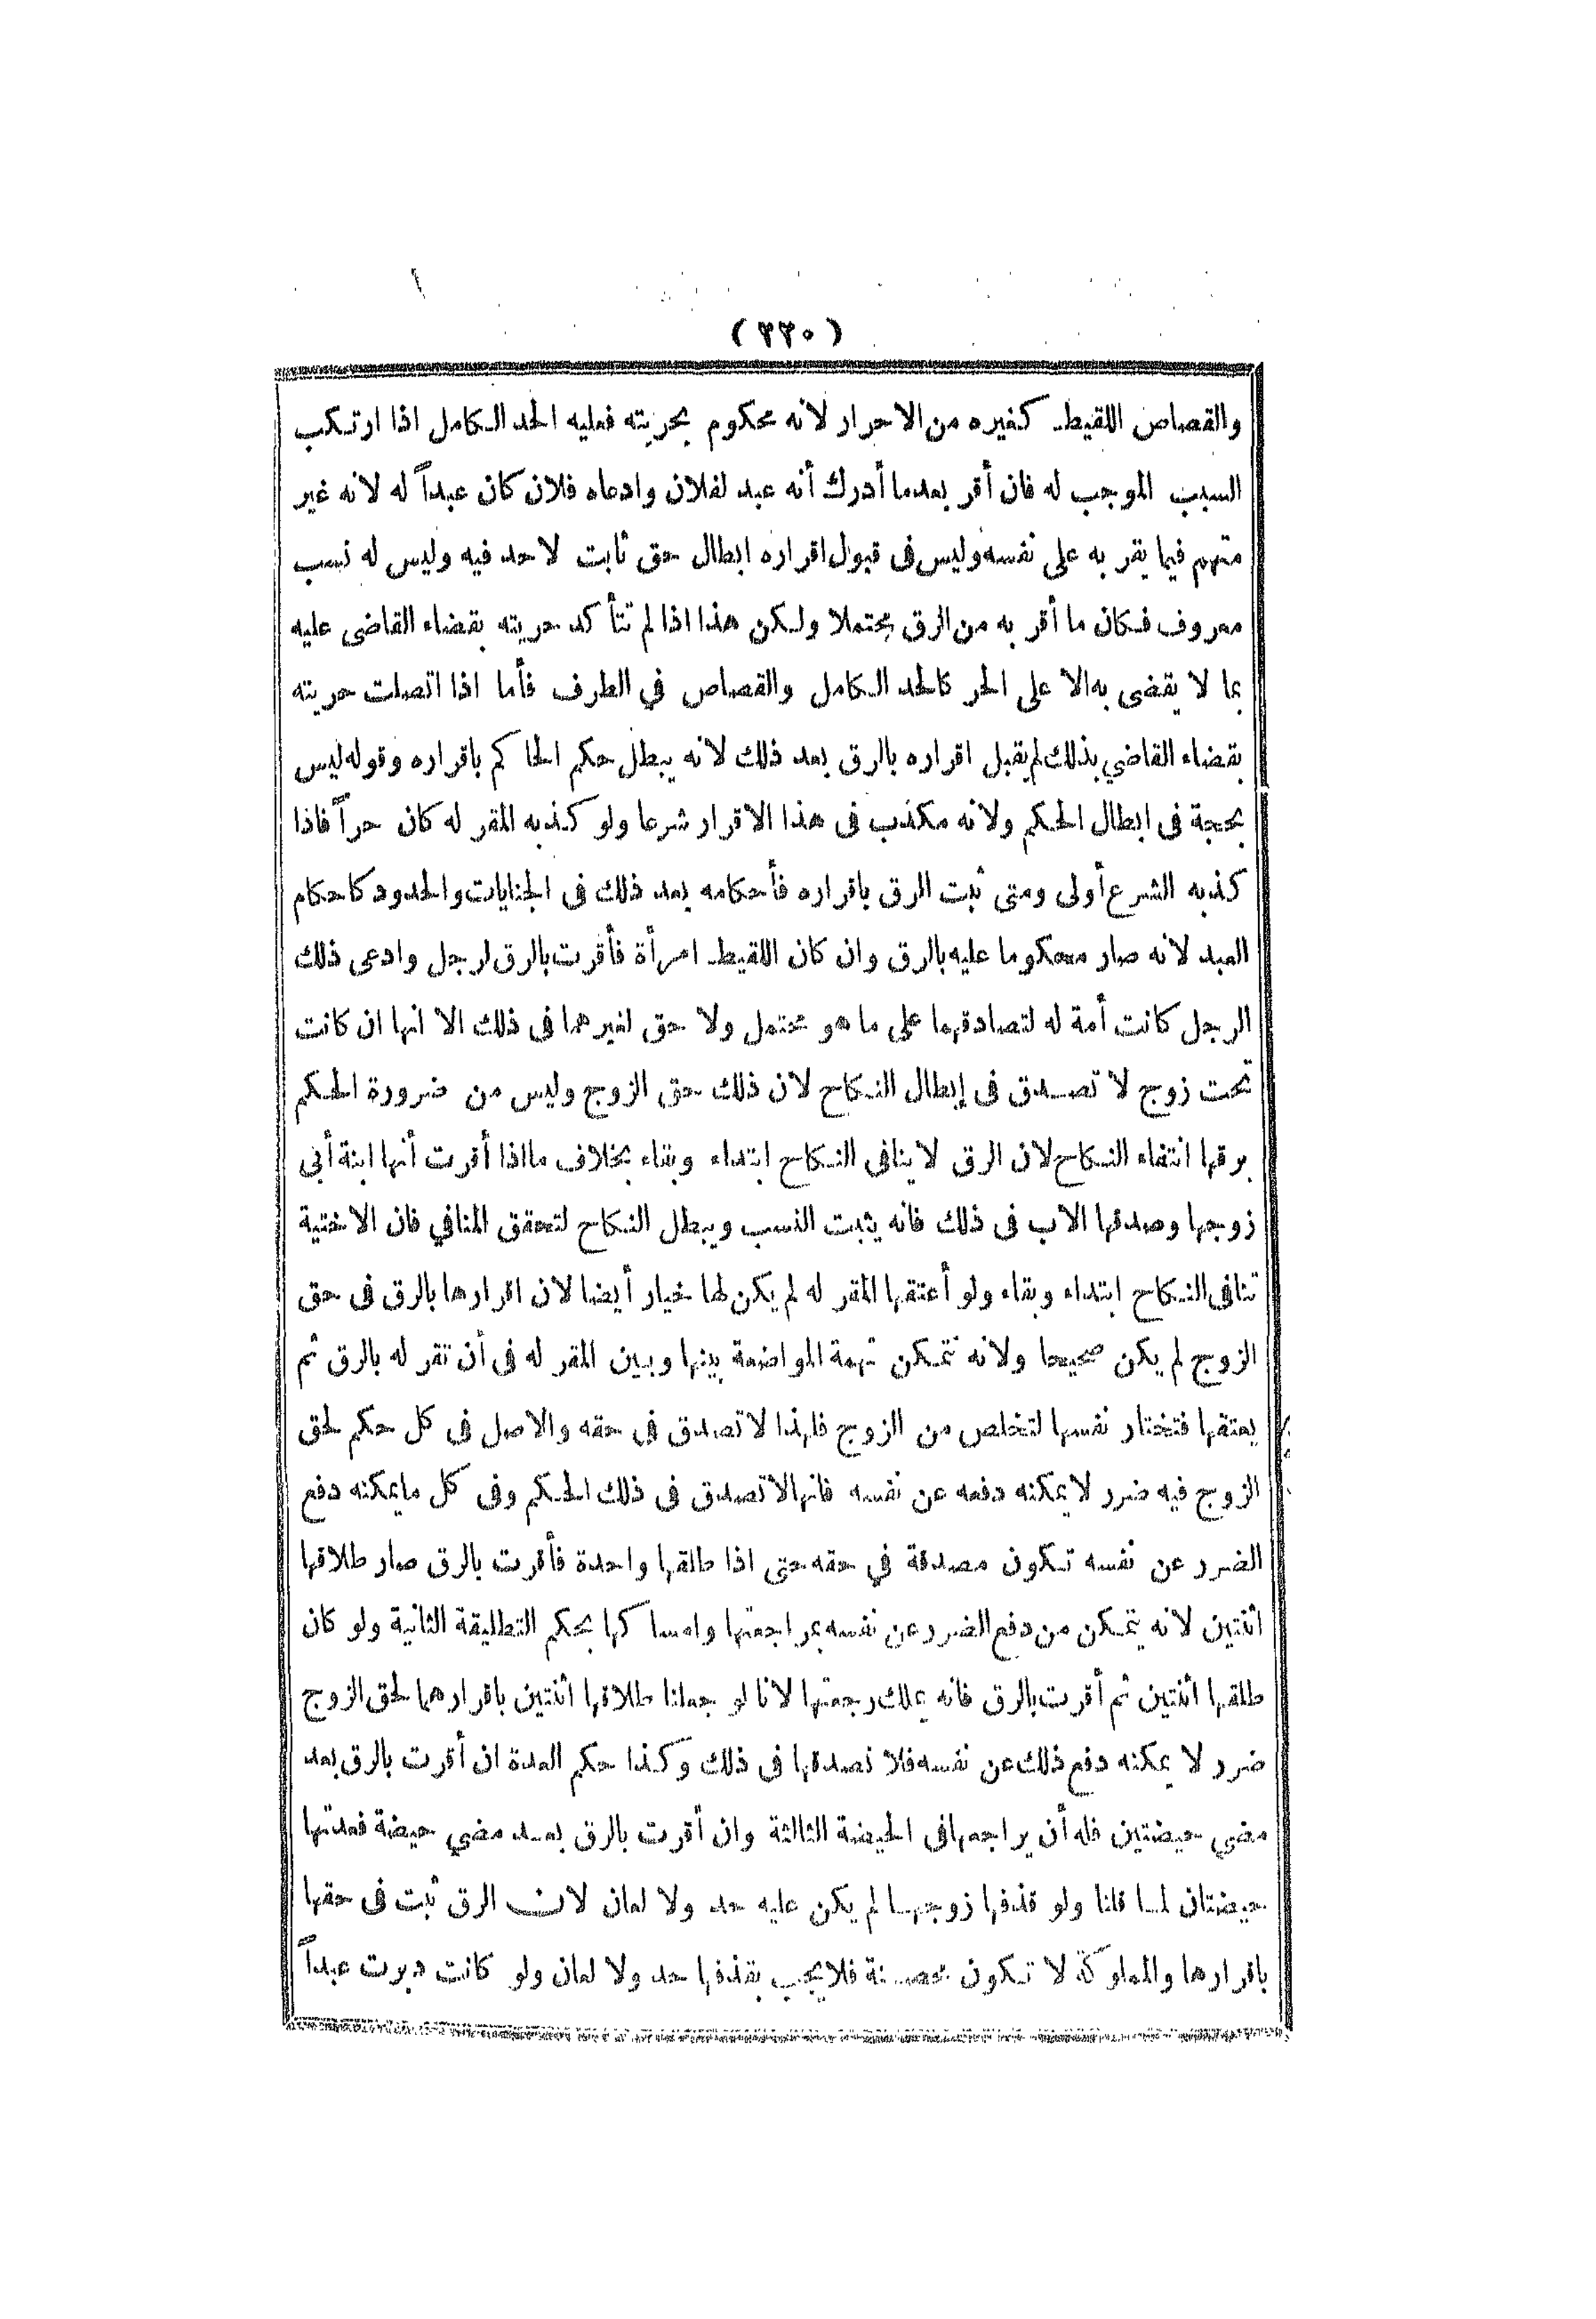 (٢٢٠)
والقصاص اللقيط كغيره من الاحرار لانه محكوم بحريته فعليه الحد الكامل اذا ارتكب
السبب الموجب له فان أقر بعدما أدرك أنه عبد لفلان وادعاه فلان كان عبداً له لانه غير
متهم فيما يقر به على نفسه وليس فى قبول اقراره ابطال حق ثابت لاحد فيه وليس له نسب
معروف فكان ما أقر به من الرق محتملا ولكن هذا اذا لم تتأكد حريته بقضاء القاضى عليه
بما لا يقضى به الا على الحر كالحد الكامل والقصاص في الطرف فأما اذا اتصلت حريته
بقضاء القاضي بذلك لم يقبل اقراره بالرق بعد ذلك لانه يبطل حكم الحاكم باقراره وقوله ليس
بحجة فى ابطال الحكم ولانه مكذب فى هذا الاقرار شرعا ولو كذبه المقر له كان حراً فاذا
كذبه الشرع أولى ومتى ثبت الرق باقراره فأحكامه بعد ذلك فى الجنايات والحدود كاحكام
العبد لانه صار محكوما عليه بالرق وان كان اللقيط امرأة فأقرت بالرق لرجل وادعى ذلك
الرجل كانت أمة له لتصادقهما على ما هو محتمل ولا حق لغيرهما فى ذلك الا انها ان كانت
تحت زوج لا تصدق فى إبطال النكاح لان ذلك حق الزوج وليس من ضرورة الحكم
برقها انتفاء النكاح لان الرق لا ينافى النكاح ابتداء وبقاء بخلاف ما اذا أقرت أنها ابنة أبى
زوجها وصدقها الاب فى ذلك فانه يثبت النسب ويبطل النكاح لتحقق المنافي فان الاختية
تنافى النكاح ابتداء وبقاء ولو أعتقها المقر له لم يكن لها خيار أيضا لان اقرارها بالرق فى حق
الزوج لم يكن صحيحا ولانه تتمكن تهمة المواضعة بينها وبين المقر له فى أن تقر له بالرق ثم
يعتقها فتختار نفسها لتخلص من الزوج فلهذا لا تصدق في حقه والاصل فى كل حكم لحق
الزوج فيه ضرر لا يمكنه دفعه عن نفسه فانها لا تصدق فى ذلك الحكم وفى كل ما يمكنه دفع
الضرر عن نفسه تكون مصدقة في حقه حتى اذا طلقها واحدة فأقرت بالرق صار طلاقها
اثنتين لانه يتمكن من دفع الضرر عن نفسه بمراجعتها وامساكها بحكم التطليقة الثانية ولو كان
طلقها اثنتين ثم أقرت بالرق فانه يملك رجعتها لانا لو جعلنا طلاقها اثنتين باقرارهما لحق الزوج
ضرر لا يمكنه دفع ذلك عن نفسه فلا نصدقها فى ذلك وكذا حكم العدة ان أقرت بالرق بعد
مضى حيضتين فله أن يراجعها فى الحيضة الثالثة وان أقرت بالرق بعد مضي حيضة فعدتها
حيضتان لما قلنا ولو قذفها زوجها لم يكن عليه حد ولا لعان لان الرق ثبت فى حقها
باقرارها والمملوكة لا تكون محصنة فلا يجب بقذفها حد ولا لعان ولو كانت دبرت عبداً